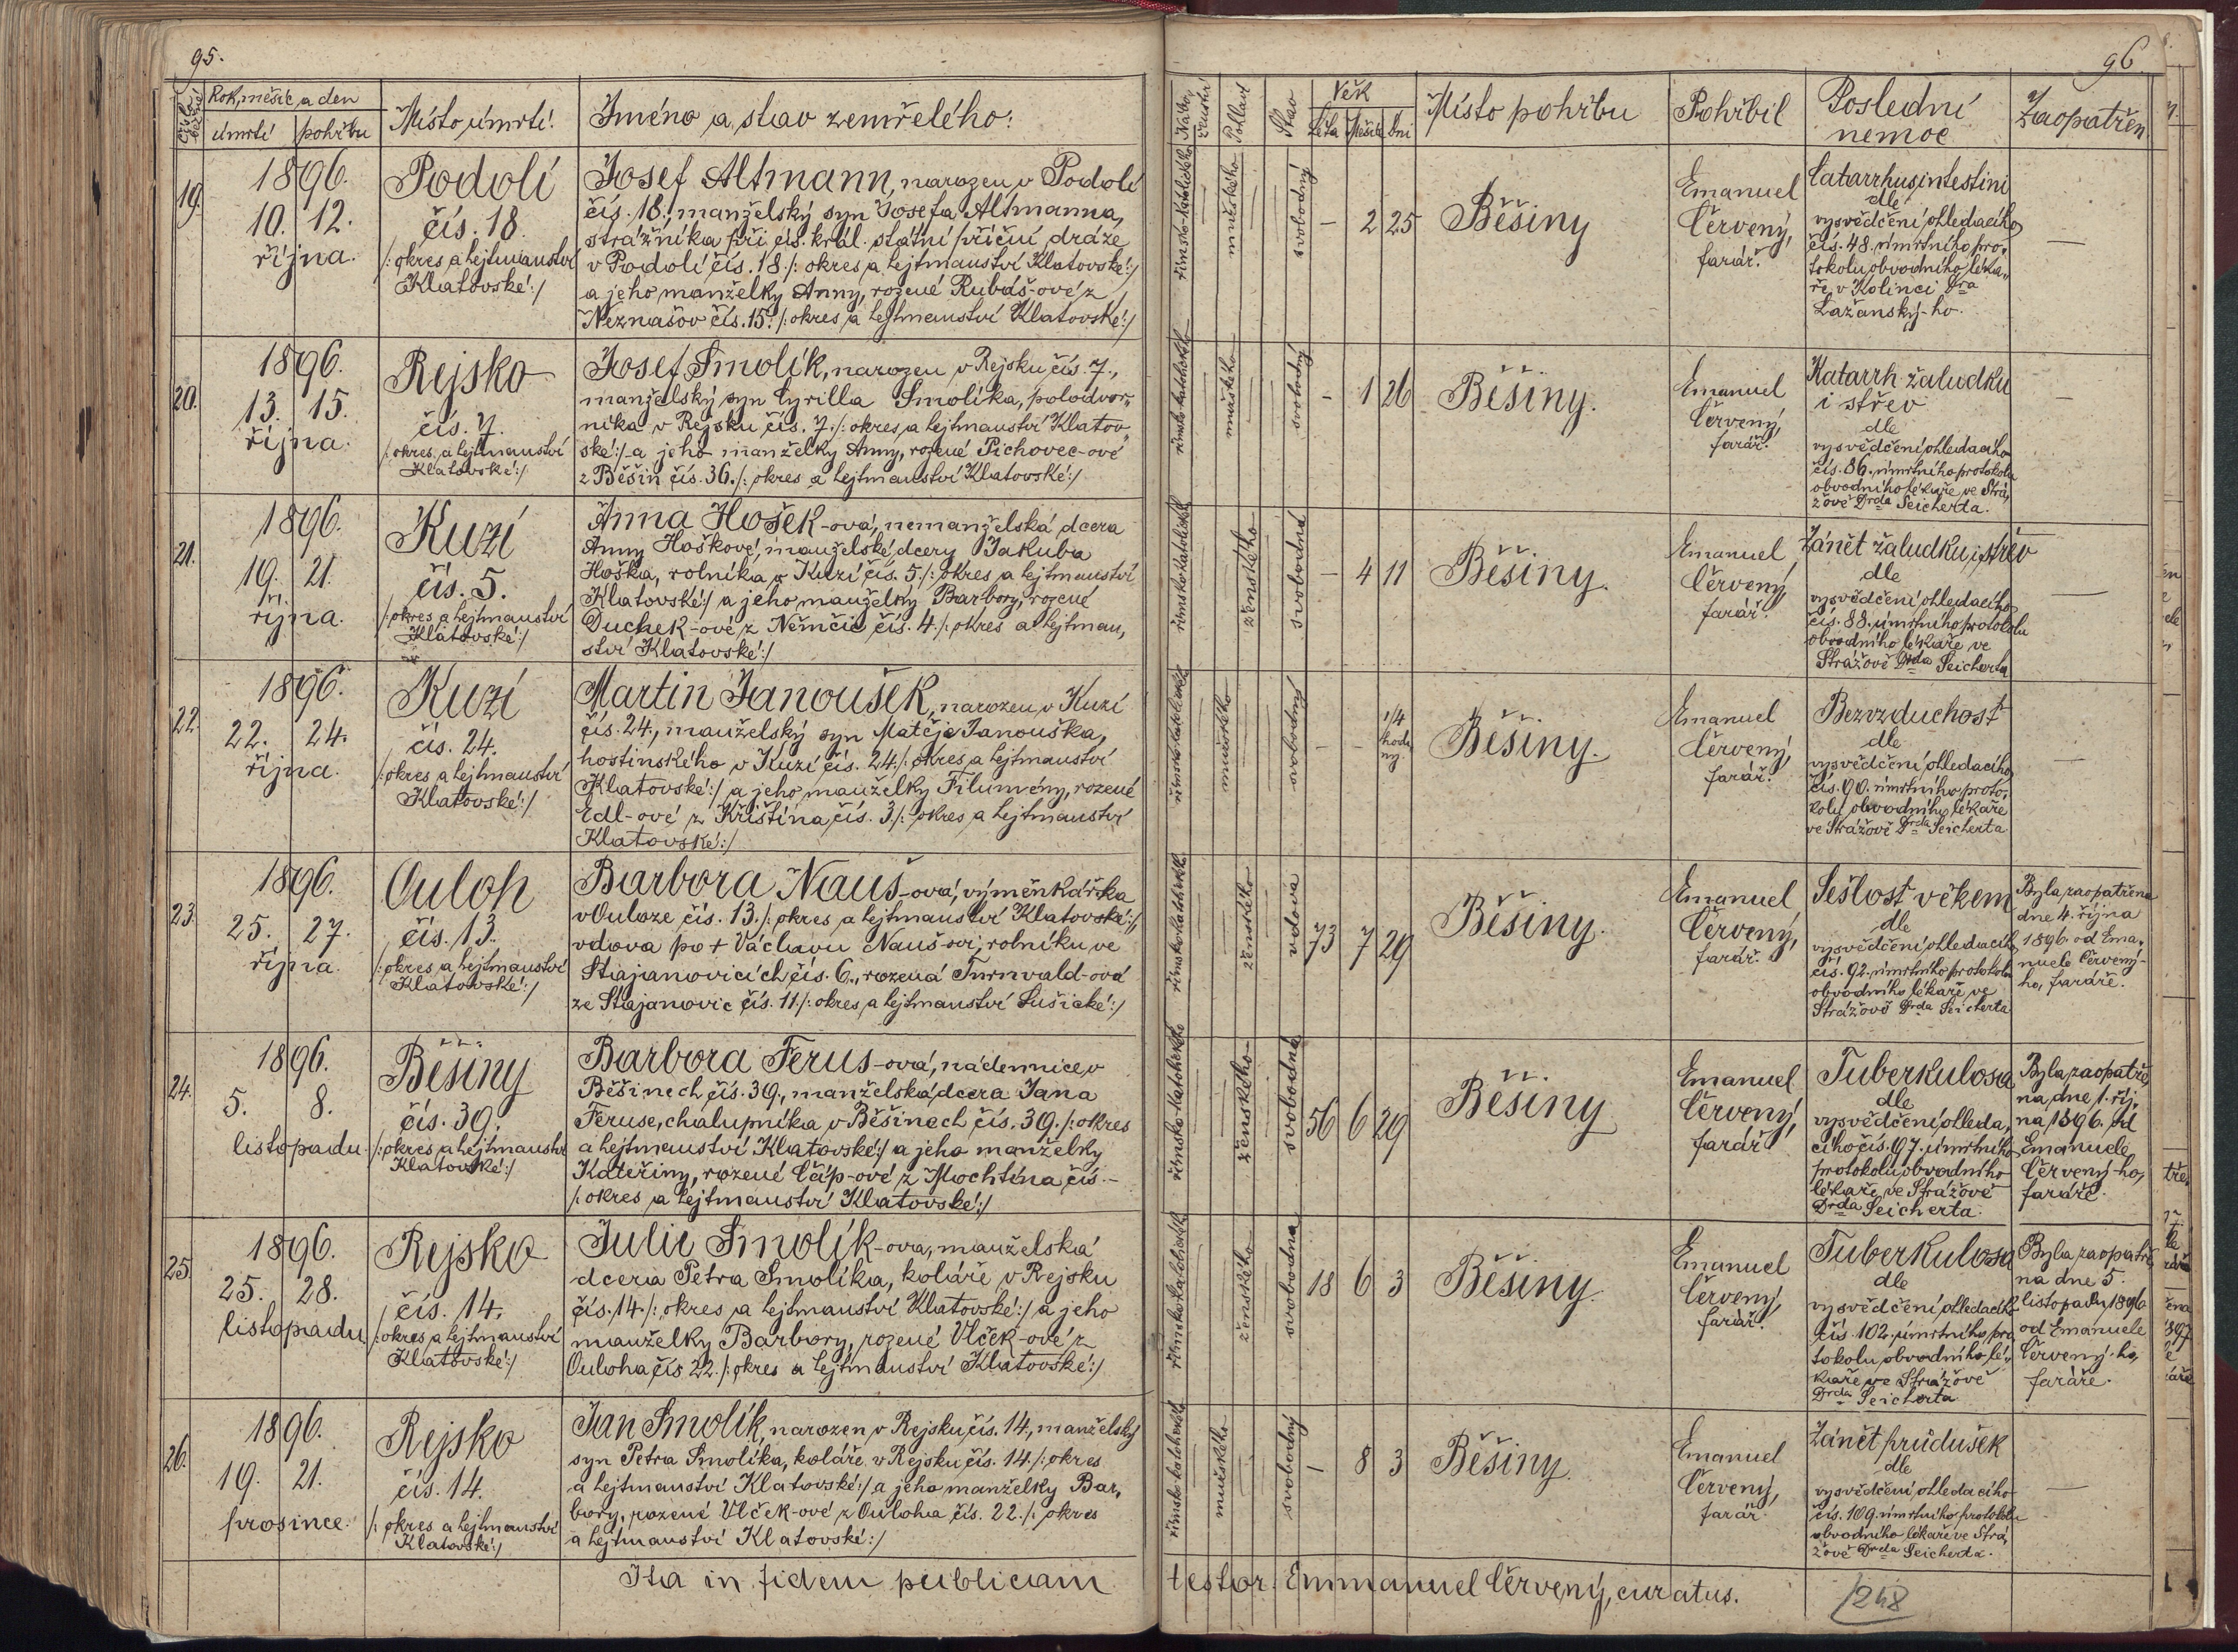 95.
Rok, měsíc a den
úmrtí pohřbu
Místo úmrtí.
Jméno a stav zemřelého:
19.
1896.
10. 12.
října.
Podolí
čís. 18.
/: okres a hejtmanství
Klatovské :/
Josef Altmann, narozen v Podolí
čís. 18., manželský syn Josefa Altmanna,
strážníka při cís. král. státní příční dráze
v Podolí čís. 18 /: okres a hejtmanství Klatovské :/
a jeho manželky Anny, rozené Rubáš-ové z
Neznašov čís. 15. /: okres a hejtmanství Klatovské :/
20.
1896.
13. 15.
října.
Rejsko
čís. 7.
/: okres a hejtmanství
Klatovské :/
Josef Smolík, narozen v Rejsku čís. 7.,
manželský syn Cyrilla Smolíka, polodvor„
níka v Rejsku čís. 7. /: okres a hejtmanství Klatov„
ské :/ a jeho manželky Anny, rozené Pichovec-ové
z Běšin čís. 36. /: okres a hejtmanství Klatovské :/
21.
1896.
19. 21.
října.
Kuzí
čís. 5.
/: okres a hejtmanství
Klatovské :/
Anna Hošek-ová, nemanželská dcera
Anny Hoškové, manželské dcery Jakuba
Hoška, rolníka v Kuzí čís. 5. /: okres a hejtmanství
Klatovské :/ a jeho manželky Barbory, rozené
Duchek-ové z Němčic čís. 4. /: okres a hejtman„
ství Klatovské :/
22.
1896.
22. 24.
října.
Kuzí
čís. 24.
/: okres a hejtmanství
Klatovské :/
Martin Janoušek, narozen v Kuzí
čís. 24., manželský syn Matěje Janouška,
hostinského v Kuzí čís. 24. /: okres a hejtmanství
Klatovské :/ a jeho manželky Filumény, rozené
Edl-ové z Křištína čís. 3 /: okres a hejtmanství
Klatovské :/
23.
1896.
25. 27.
října.
Ouloh
čís. 13.
/: okres a hejtmanství
Klatovské :/
Barbora Nauš-ová, výměnkářka
v Ouloze čís. 13. /: okres a hejtmanství Klatovské :/,
vdova po + Václavu Nauš-ovi, rolníku ve
Stajanovicích čís. 6., rozená Turnvald-ová
ze Stajanovic čís. 11 /: okres a hejtmanství Sušické :/
24.
1896.
5. 8.
listopadu
Běšiny
čís. 39.
/: okres a hejtmanství
Klatovské :/
Barbora Ferus-ová, nádennice v
Běšinech čís. 39., manželská dcera Jana
Feruse, chalupníka v Běšinech čís. 39. /: okres
a hejtmanství Klatovské :/ a jeho manželky
Kateřiny, rozené Čáp-ové z Mochtína čís –
/: okres a hejtmanství Klatovské :/
25.
1896.
25. 28.
listopadu
Rejsko
čís. 14.
/: okres a hejtmanství
Klatovské :/
Julie Smolík-ova, manželská
dcera Petra Smolíka, koláře v Rejsku
čís. 14. /: okres a hejtmanství Klatovské :/ a jeho
manželky Barbory, rozené Vlček-ové z
Ouloha čís 22. /: okres a hejtmanství Klatovské :/
26.
1896.
19. 21.
prosince.
Rejsko
čís. 14.
/: okres a hejtmanství
Klatovské :/
Jan Smolík, narozen v Rejsku čís. 14., manželský
syn Petra Smolíka, koláře v Rejsku čís. 14. /: okres
a hejtmanství Klatovské :/ a jeho manželky Bar„
bory, rozené Vlček-ové z Oulohu čís. 22. /: okres
a hejtmanství Klatovské :/
Ita in fidem publicam
96
Nábo„
ženství
Pohlaví
Stav
Věk
Léta Měsíce Dni
Místo pohřbu
Pohřbil
Poslední
nemoc
Zaopatřen
římsko-katolického
mužského
svobodný
– 2 25
Běšiny
Emanuel
Červený,
farář.
Catarrhus intestini
dle
vysvědčení ohledacího
čís. 48. úmrtního pro„
tokolu obvodního léka„
ře v Kolinci Dra
Lažanský-ho.
—
římsko katolického
mužského
svobodný
– 1 26
Běšiny.
Emanuel
Červený,
farář.
Katarrh žaludku
i střev
dle
vysvědčení ohledacího
čís. 86. úmrtního protokolu
obvodního lékaře ve Strá„
žově Drda Seicherta.
–
římsko katolického
ženského
svobodná
– 4 11
Běšiny.
Emanuel
Červený,
farář.
Zánět žaludku i střev
dle
vysvědčení ohledacího
čís. 88. úmrtního protokolu
obvodního lékaře ve
Strážově Drda Seicherta
—
římsko katolického
mužského
svobodný
– – 1/4
hodi„
ny.
Běšiny.
Emanuel
Červený,
farář.
Bezvzduchost
dle
vysvědčení ohledacího
čís. 90. úmrtního proto„
kolu obvodního lékaře
ve Strážově Drda Seicherta
—
římsko katolického
ženského
vdova
73 7 29
Běšiny.
Emanuel
Červený,
farář.
Sešlost věkem
dle
vysvědčení ohledacího
čís. 92. úmrtního protokolu
obvodního lékaře ve
Strážově Drda Seicherta
Byla zaopatřena
dne 4. října
1896. od Ema„
nuele Červený-
ho, faráře.
římsko-katolického
ženského
svobodná
56 6 29
Běšiny
Emanuel
Červený,
farář
Tuberkulosa
dle
vysvědčení ohleda„
cího čís. 97. úmrtního
protokolu obvodního
lékaře ve Strážově
Drda Seicherta.
Byla zaopatře„
na dne 1. říj„
na 1896. od
Emanuele
Červený-ho,
faráře.
římsko katolického
ženského
svobodna
18 6 3
Běšiny.
Emanuel
Červený,
farář.
Tuberkulosa
dle
vysvědčení ohledacího
čís. 102. úmrtního pro„
tokolu obvodního lé„
kaře ve Strážově
Drda Seicherta
Byla zaopatře„
na dne 5.
listopadu 1896
od Emanuele
Červený-ho,
faráře.
římsko katolického
mužského
svobodný
– 8 3
Běšiny.
Emanuel
Červený,
farář.
Zánět průdušek
dle
vysvědčení ohledacího
čís. 109. úmrtního protokolu
obvodního lékaře ve Strá„
žově Drda Seicherta.
—
testor. Emmanuel Červený, curatus.
248